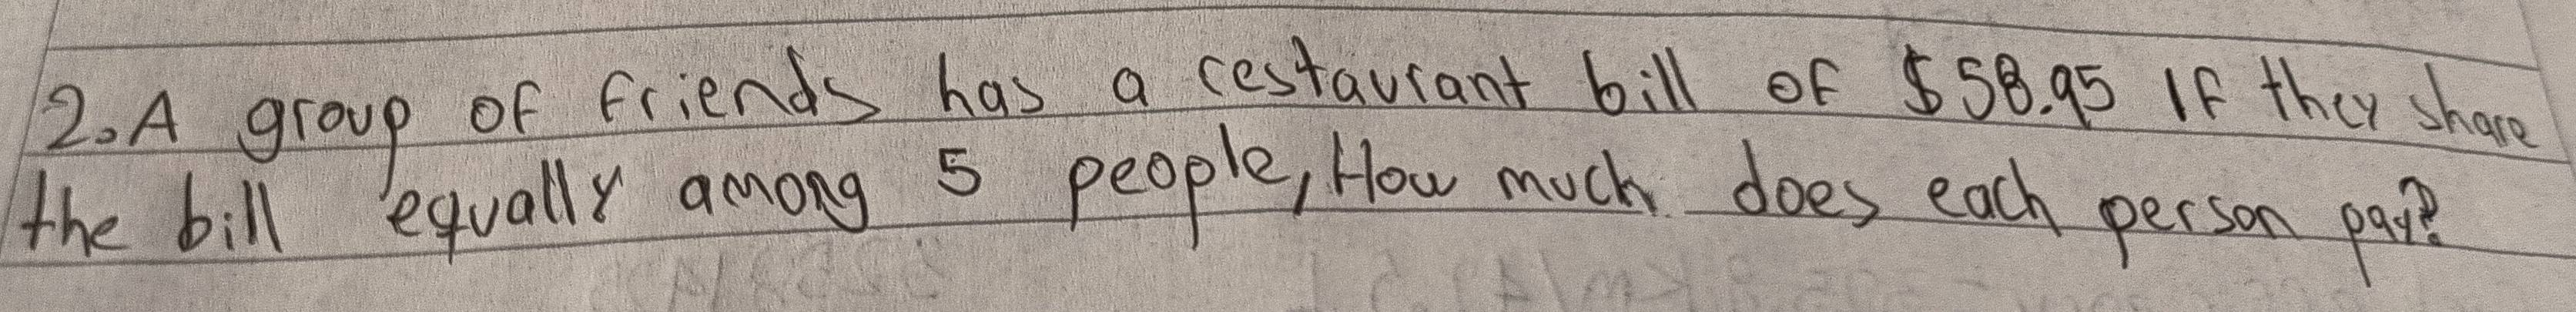 2. A group of friends has a restaurant bill of $58.95 If they share
the bill equally among 5 people, How much does each person pay?